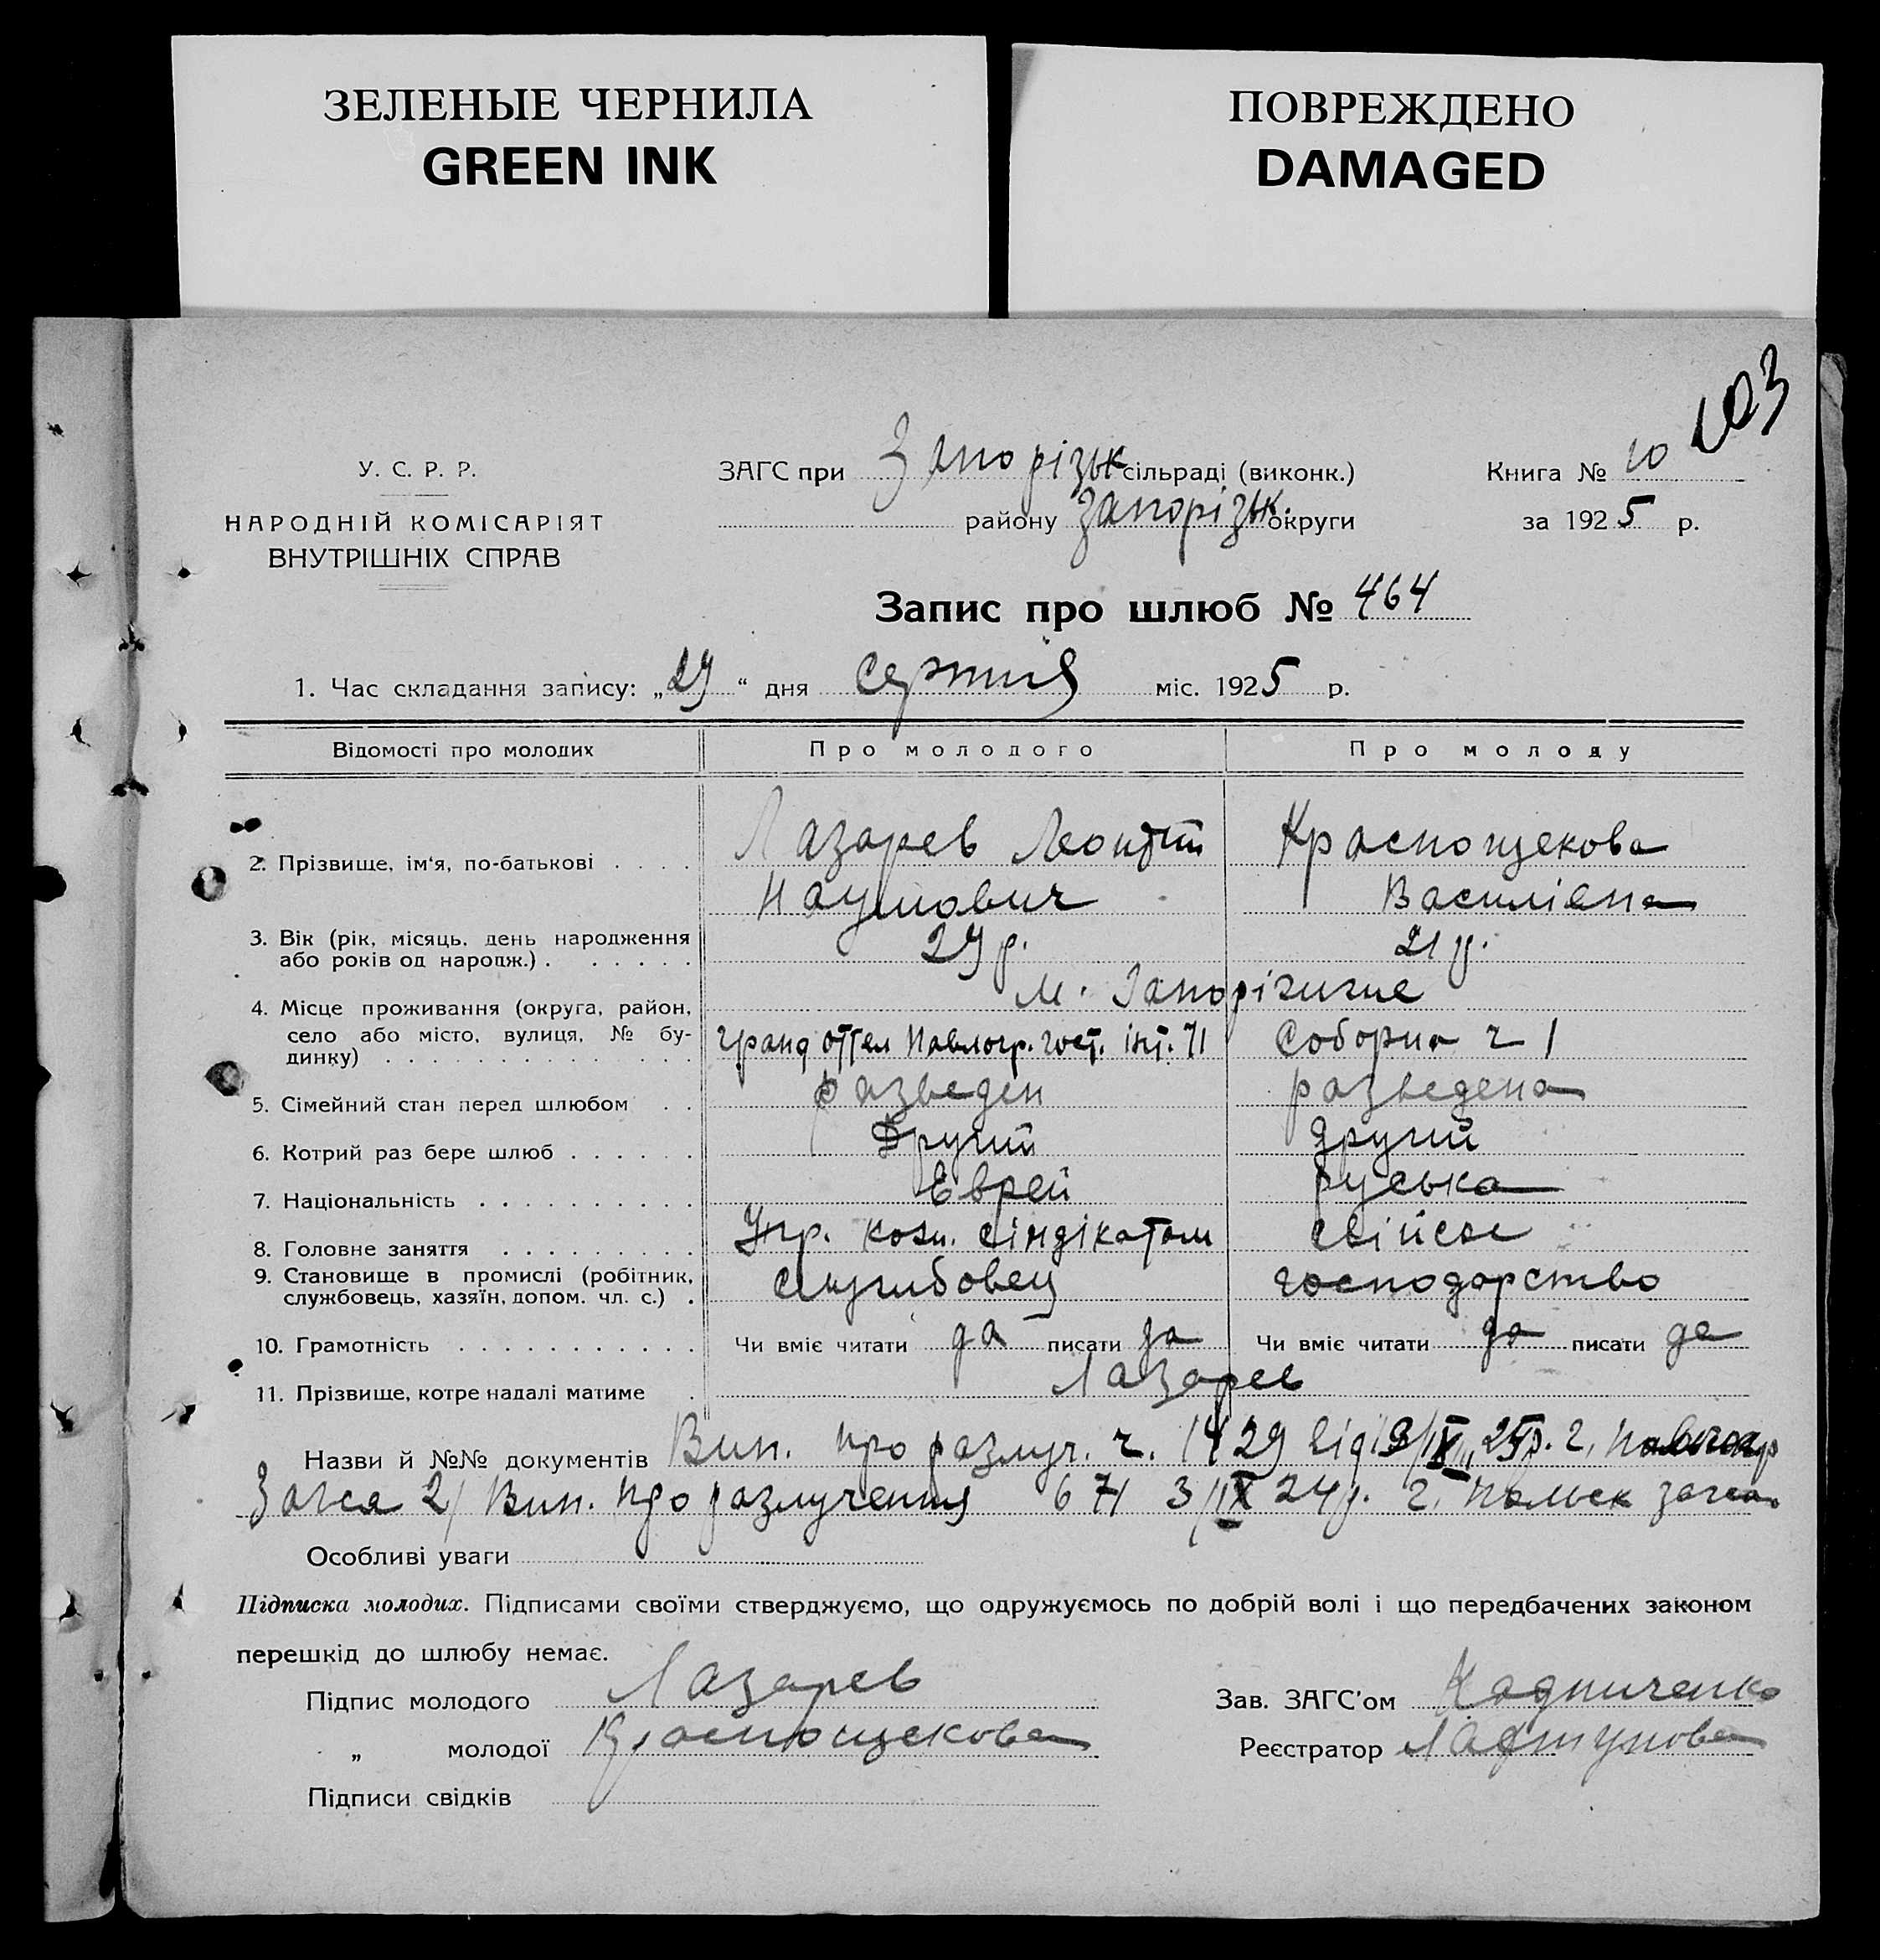 ЗЕЛЕНЫЕ ЧЕРНИЛА
GREEN INK
ПОВРЕЖДЕНО
DAMAGED
103
У. С. Р. Р.
НАРОДНІЙ КОМІСАРІЯТ
ВНУТРІШНІХ СПРАВ
ЗАГС при Запорізьк сільраді (виконк.)
району Запорізьк. округи
Книга № 10
за 1925 р.
Запис про шлюб № 464
1. Час складання запису: „29“ дня серпня міс. 1925 р.
Відомості про молодих Про молодого Про молоду
2. Прізвище, ім'я, по-батькові . . . . Лазарев Краснощекова
Наумович Василівна
3. Вік (рік, місяць, день народження 29 р. 21 р.
або років од народж.) . . . . . .
4. Місце проживання (округа, район, м. Запоріжжє
село або місто, вулиця, № бу- гранд Павлогр. гост. 71 Соборна ч 1
динку) . . . . . . . . . . . . .
5. Сімейний стан перед шлюбом . . разведен разведена
6. Котрий раз бере шлюб . . . . . . Другий другий
7. Національність . . . . . . . . . . Еврей руська
8. Головне заняття . . . . . . . . . Упр. сіндікатом свійське
9. Становище в промислі (робітник, службовец господарство
службовець, хазяїн, допом. чл. с.) .
10. Грамотність . . . . . . . . . . . Чи вміє читати да писати да Чи вміє читати да писати да
11. Прізвище, котре надалі матиме . Лазарев
Назви й №№ документів Вип. про разлуч. ч. 1429 від
Загса 2/ Вип. про разлучення 671 3/IX 24 р. загса
Особливі уваги
Підписка молодих. Підписами своїми стверджуємо, що одружуємось по добрій волі і що передбачених законом
перешкід до шлюбу немає.
Підпис молодого Лазарев
Зав. ЗАГС'ом
„ молодої Краснощекова
Реєстратор
Підписи свідків